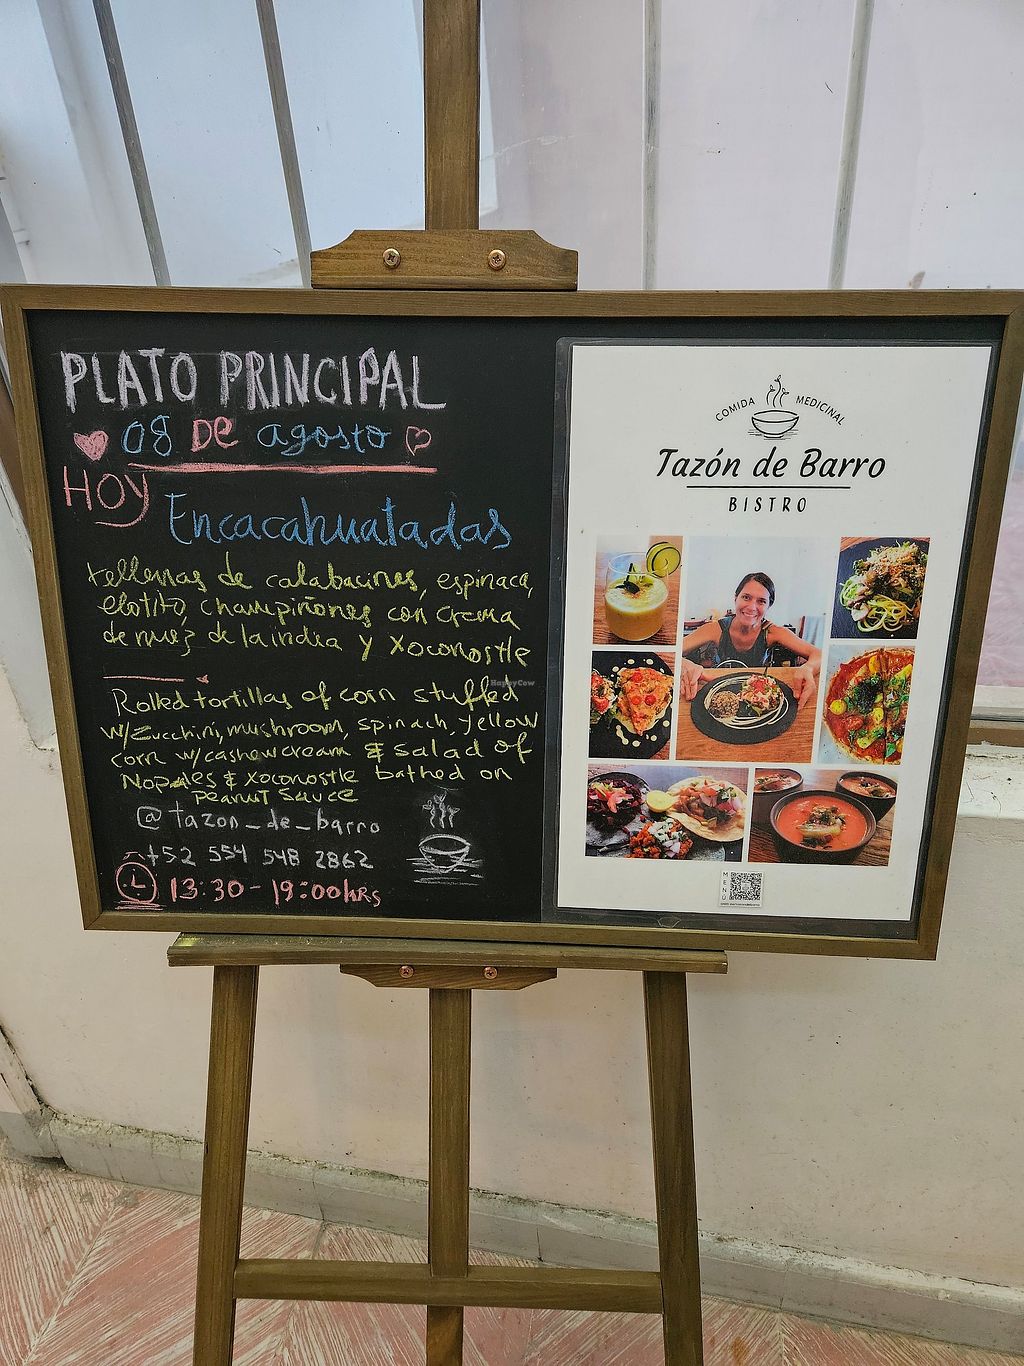 PLATO PRINCIPAL
08 DE agosto
HOY
Encacahuatadas
rellenas de calabacines, espinaca,
elotito, champiñones con crema
de nuez de la india y xoconostle
Rolled tortillas of corn stuffed
w/zucchini, mushroom, spinach, yellow
corn w/cashew cream & salad of
Nopales & xoconostle bathed on
peanut sauce
@tazon_de_barro
+52 554 548 2862
13:30-19:00hrs
COMIDA MEDICINAL
Tazón de Barro
BISTRO
MENÚ
HappyCow